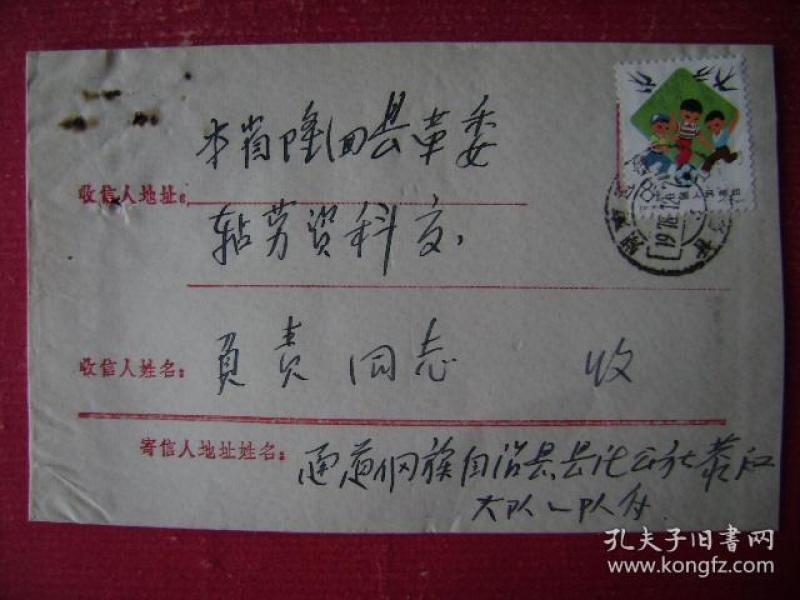 本省隆回县革委
收信人地址:
转劳资科交.
收信人姓名: 负责同志 收
寄信人地址姓名: 通道侗族自治县县化公社
大队一队付.
孔夫子旧书网
www.kongfz.com